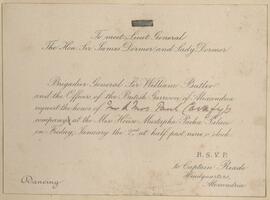 To meet Lieut General
The Hon. Sir James Dormer and Lady Dormer
Brigadier General Sir William Butler
and the Officers of the British Garrison of Alexandria
request the honor of Mr & Mrs Paul Cavafy's
company at the Mess House Mustapha Pacha Palace
on Friday, January the 2nd at half past nine o'clock.
R.S.V.P.
to Captain Reade
Headquarters
Alexandria
Dancing